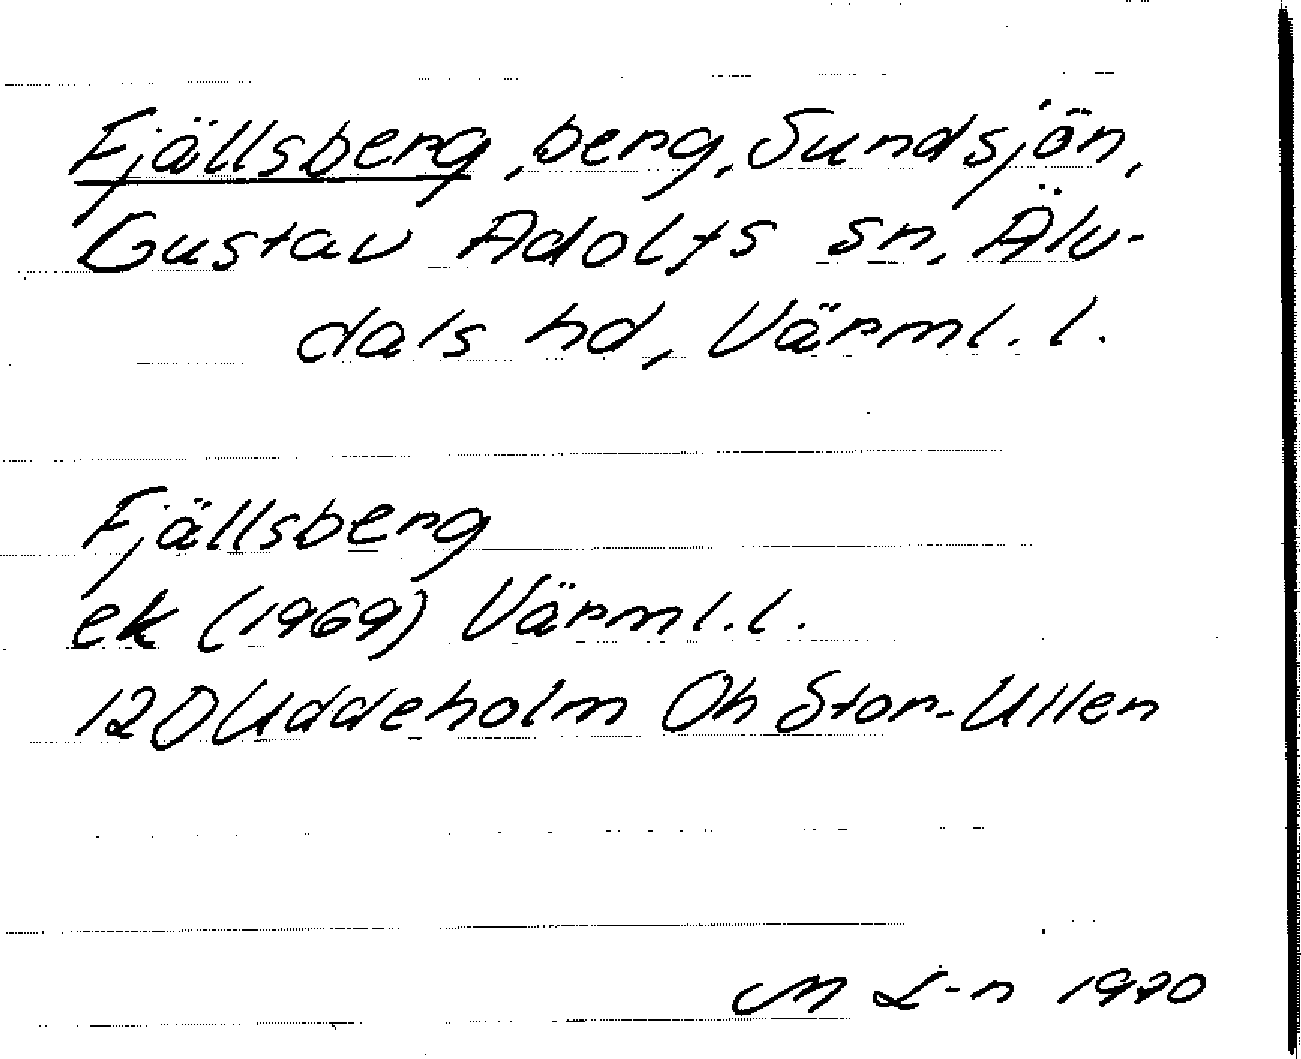 Fjällsberg, berg, Sundsjön,
Gustav Adolfs sn, Älv-
dals hd, Värml. l.
Fjällsberg
ek (1969) Värml. l.
12D Uddeholm Öh Stor-Ullen
M L-n 1970